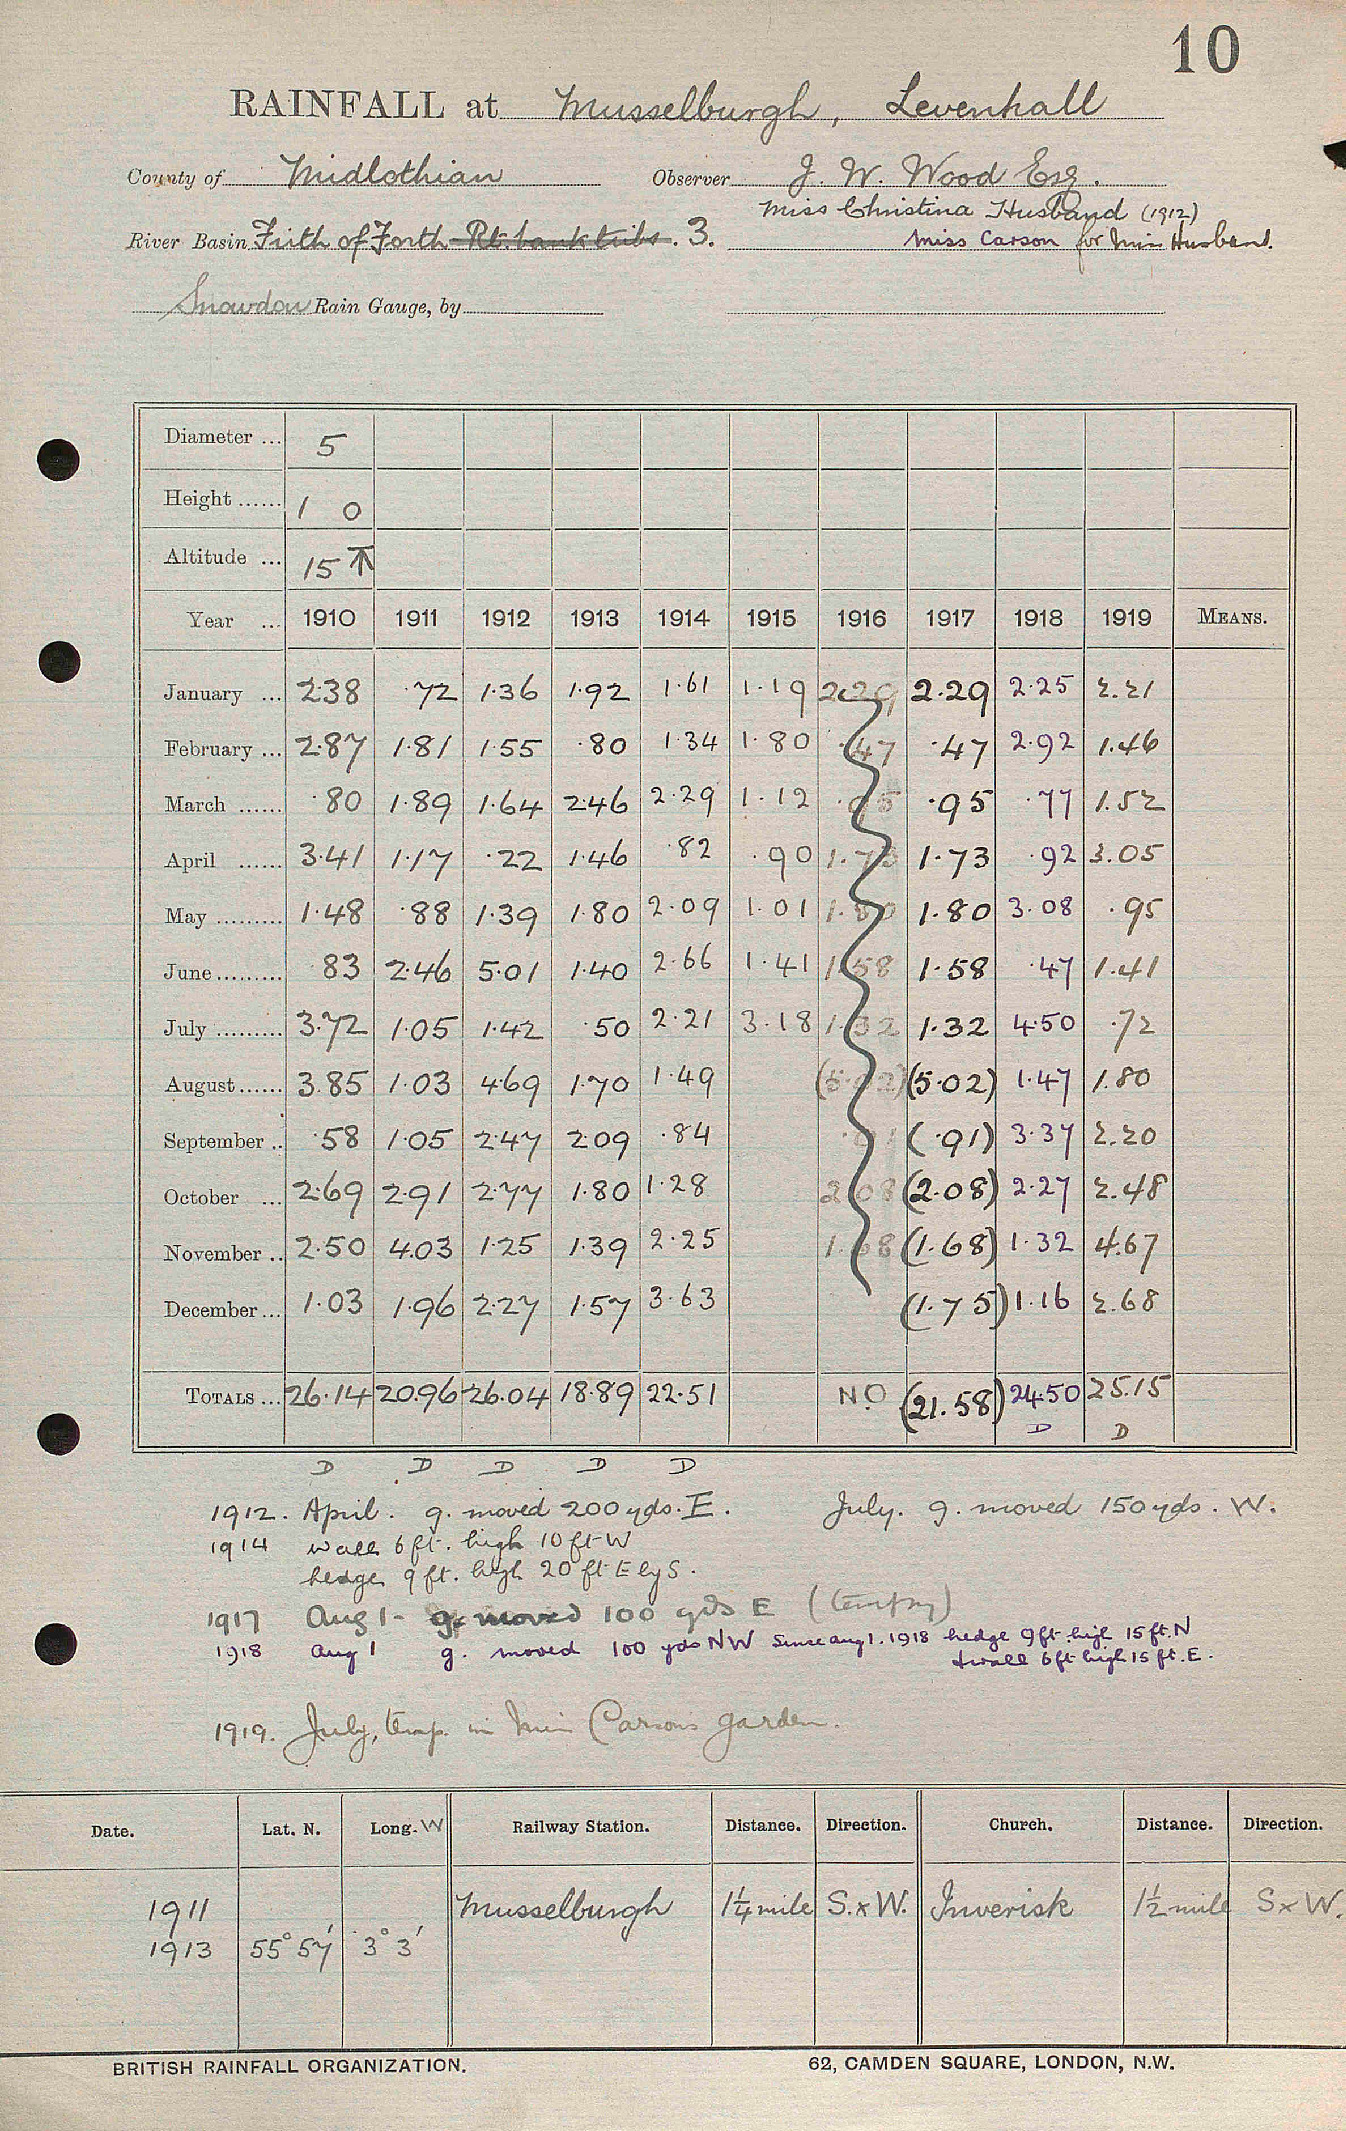 10
RAINFALL at Musselburgh, Levenhall
County of Midlothian Observer J. W. Wood Esq.
Miss Christina Husband (1912)
River Basin Firth of Forth Rt. bank tribs. 3. Miss Carson for Miss Husband.
Snowdon Rain Gauge, by
Diameter ... 5
Height ...... 1 0
Altitude ... 15
Year ... 1910 1911 1912 1913 1914 1915 1916 1917 1918 1919 MEANS.
January ... 2.38 .72 1.36 1.92 1.61 1.19 2.29 2.29 2.25 2.21
February ... 2.87 1.81 1.55 .80 1.34 1.80 .47 .47 2.92 1.46
March ...... .80 1.89 1.64 2.46 2.29 1.12 .95 .95 .77 1.52
April ...... 3.41 1.17 .22 1.46 .82 .90 1.73 1.73 .92 3.05
May ......... 1.48 .88 1.39 1.80 2.09 1.01 1.80 1.80 3.08 .95
June ......... .83 2.46 5.01 1.40 2.66 1.41 1.58 1.58 .47 1.41
July ......... 3.72 1.05 1.42 .50 2.21 3.18 1.32 1.32 4.50 .72
August ...... 3.85 1.03 4.69 1.70 1.49 (5.02) (5.02) 1.47 1.80
September .. .58 1.05 2.47 2.09 .84 .91 (.91) 3.37 2.20
October ... 2.69 2.91 2.77 1.80 1.28 2.08 (2.08) 2.27 2.48
November .. 2.50 4.03 1.25 1.39 2.25 1.68 (1.68) 1.32 4.67
December ... 1.03 1.96 2.27 1.57 3.63 (1.75) 1.16 2.68
TOTALS ... 26.14 20.96 26.04 18.89 22.51 NO (21.58) 24.50 25.15
D D
D D D D D
1912. April. g. moved 200 yds. E. July. g. moved 150 yds. W.
1914 wall 6 ft. high 10 ft W
hedge 9 ft. high 20 ft E by S.
1917 Aug 1 - g. moved 100 yds E (tempry)
1918 Aug 1 g. moved 100 yds NW Since Aug 1. 1918 hedge 9 ft. high 15 ft. N
+ wall 6 ft high 15 ft. E.
1919. July, temp. in Miss Carson's garden.
Date. Lat. N. Long. W Railway Station. Distance. Direction. Church. Distance. Direction.
1911 Musselburgh 1¼ mile S. x W. Inveresk 1½ mile S x W.
1913 55° 57' 3° 3'
BRITISH RAINFALL ORGANIZATION. 62, CAMDEN SQUARE, LONDON, N.W.